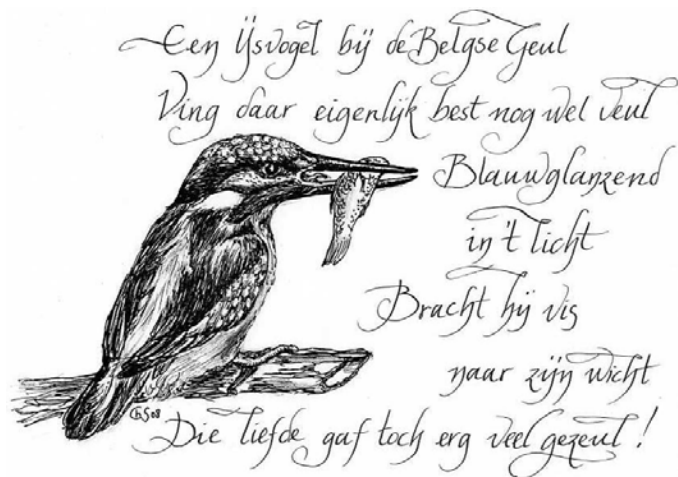 Een IJsvogel bij de Belgse Geul
Ving daar eigenlijk best nog wel veul
Blauwglanzend
in 't licht
Bracht hij vis
naar zijn wicht
Die liefde gaf toch erg veel gezeul!